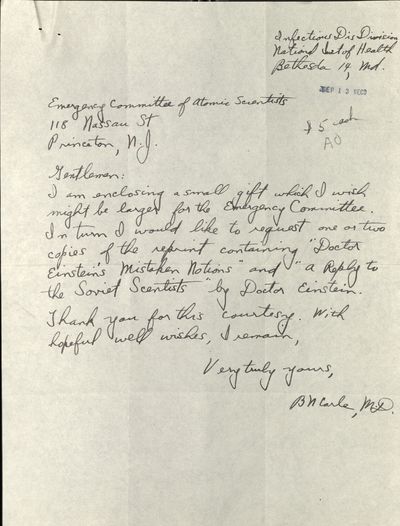 Infectious Dis Division
National Inst of Health
Bethesda 14, Md.
SEP 13 REC'D
Emergency Committee of Atomic Scientists
118 Nassau St
Princeton, N.J.
$5 cash
AO
Gentlemen:
I am enclosing a small gift which I wish
might be larger for the Emergency Committee.
In turn I would like to request one or two
copies of the reprint containing "Doctor
Einstein's Mistaken Notions" and "a Reply to
the Soviet Scientists" by Doctor Einstein.
Thank you for this courtesy. With
hopeful well wishes, I remain,
Very truly yours,
B N Carle, M.D.